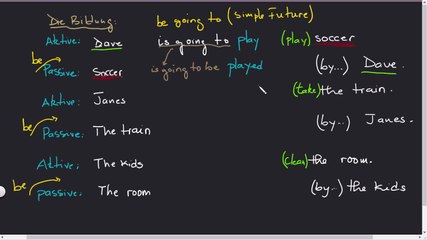 Die Bildung: be going to (simple Future)
Aktive: Dave is going to play (play) soccer
be Passive: Soccer is going to be played (by...) Dave.
Aktive: Janes (take) the train.
be Passive: The train (by...) Janes.
Aktive: The kids (clean) the room.
be passive: The room (by...) the kids